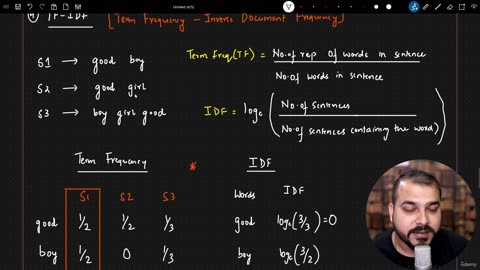 ④ TF-IDF [Term Frequency – Inverse Document Frequency]
S1 → good boy
S2 → good girl
S3 → boy girl good
Term Freq(TF) = No. of rep of words in sentence / No. of words in sentence
IDF = loge (No. of sentences / No. of sentences containing the word)
Term Frequency * IDF
S1 S2 S3 Words IDF
good 1/2 1/2 1/3 good loge(3/3)=0
boy 1/2 0 1/3 boy loge(3/2)
Udemy